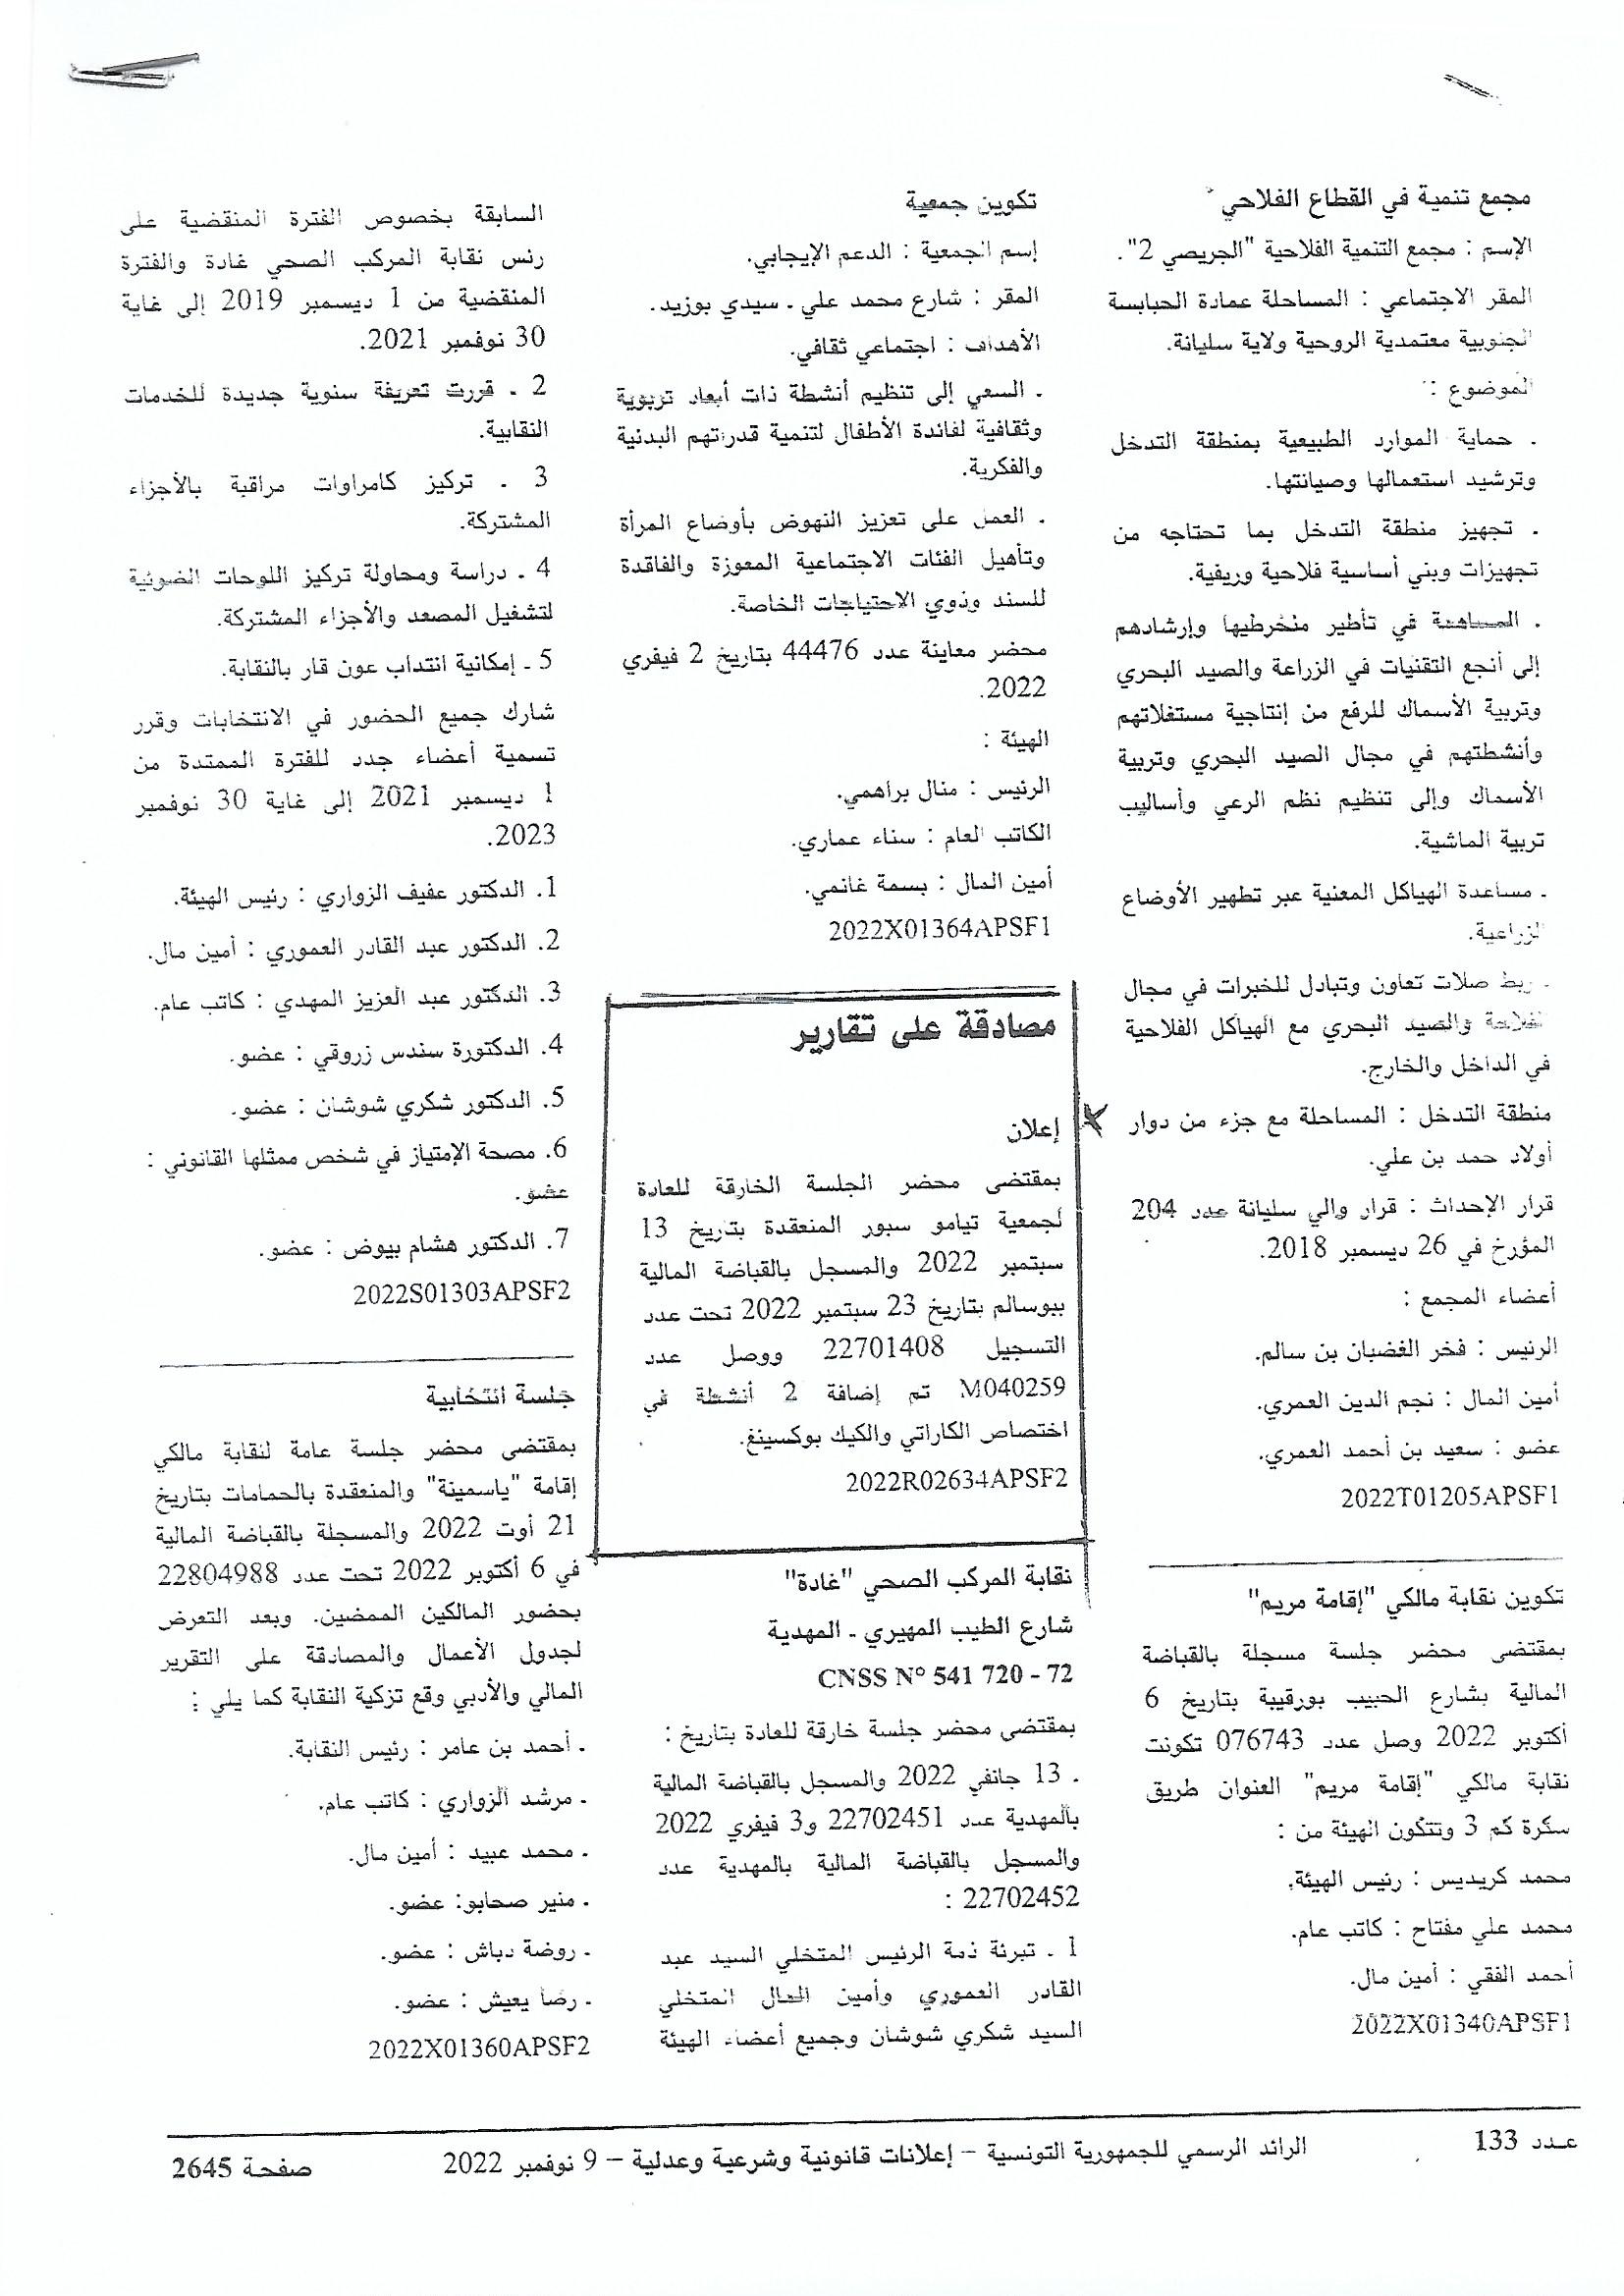 مجمع تنمية في القطاع الفلاحي
الإسم : مجمع التنمية الفلاحية "الجريصي 2".
المقر الاجتماعي : المساحلة عمادة الحبابسة
الجنوبية معتمدية الروحية ولاية سليانة.
الموضوع :
ـ حماية الموارد الطبيعية بمنطقة التدخل
وترشيد استعمالها وصيانتها.
ـ تجهيز منطقة التدخل بما تحتاجه من
تجهيزات وبني أساسية فلاحية وريفية.
ـ المساهمة في تأطير منخرطيها وإرشادهم
إلى أنجع التقنيات في الزراعة والصيد البحري
وتربية الأسماك للرفع من إنتاجية مستغلاتهم
وأنشطتهم في مجال الصيد البحري وتربية
الأسماك وإلى تنظيم نظم الرعي وأساليب
تربية الماشية.
ـ مساعدة الهياكل المعنية عبر تطهير الأوضاع
الزراعية.
ـ ربط صلات تعاون وتبادل للخبرات في مجال
الفلاحة والصيد البحري مع الهياكل الفلاحية
في الداخل والخارج.
منطقة التدخل : المساحلة مع جزء من دوار
أولاد حمد بن علي.
قرار الإحداث : قرار والي سليانة عدد 204
المؤرخ في 26 ديسمبر 2018.
أعضاء المجمع :
الرئيس : فخر الغضبان بن سالم.
أمين المال : نجم الدين العمري.
عضو : سعيد بن أحمد العمري.
2022T01205APSF1
تكوين نقابة مالكي "إقامة مريم"
بمقتضى محضر جلسة مسجلة بالقباضة
المالية بشارع الحبيب بورقيبة بتاريخ 6
أكتوبر 2022 وصل عدد 076743 تكونت
نقابة مالكي "إقامة مريم" العنوان طريق
سكرة كم 3 وتتكون الهيئة من :
محمد كريديس : رئيس الهيئة.
محمد علي مفتاح : كاتب عام.
أحمد الفقي : أمين مال.
2022X01340APSF1
تكوين جمعية
إسم الجمعية : الدعم الإيجابي.
المقر : شارع محمد علي ـ سيدي بوزيد.
الأهداف : اجتماعي ثقافي.
ـ السعي إلى تنظيم أنشطة ذات أبعاد تربوية
وثقافية لفائدة الأطفال لتنمية قدراتهم البدنية
والفكرية.
ـ العمل على تعزيز النهوض بأوضاع المرأة
وتأهيل الفئات الاجتماعية المعوزة والفاقدة
للسند وذوي الاحتياجات الخاصة.
محضر معاينة عدد 44476 بتاريخ 2 فيفري
2022.
الهيئة :
الرئيس : منال براهمي.
الكاتب العام : سناء عماري.
أمين المال : بسمة غانمي.
2022X01364APSF1
مصادقة على تقارير
إعلان
بمقتضى محضر الجلسة الخارقة للعادة
لجمعية تيامو سبور المنعقدة بتاريخ 13
سبتمبر 2022 والمسجل بالقباضة المالية
ببوسالم بتاريخ 23 سبتمبر 2022 تحت عدد
التسجيل 22701408 ووصل عدد
M040259 تم إضافة 2 أنشطة في
اختصاص الكاراتي والكيك بوكسينغ.
2022R02634APSF2
نقابة المركب الصحي "غادة"
شارع الطيب المهيري ـ المهدية
CNSS N° 541 720 - 72
بمقتضى محضر جلسة خارقة للعادة بتاريخ :
ـ 13 جانفي 2022 والمسجل بالقباضة المالية
بالمهدية عدد 22702451 و3 فيفري 2022
والمسجل بالقباضة المالية بالمهدية عدد
22702452 :
1 ـ تبرئة ذمة الرئيس المتخلي السيد عبد
القادر العموري وأمين المال المتخلي
السيد شكري شوشان وجميع أعضاء الهيئة
السابقة بخصوص الفترة المنقضية على
رئس نقابة المركب الصحي غادة والفترة
المنقضية من 1 ديسمبر 2019 إلى غاية
30 نوفمبر 2021.
2 ـ قررت تعريفة سنوية جديدة للخدمات
النقابية.
3 ـ تركيز كامراوات مراقبة بالأجزاء
المشتركة.
4 ـ دراسة ومحاولة تركيز اللوحات الضوئية
لتشغيل المصعد والأجزاء المشتركة.
5 ـ إمكانية انتداب عون قار بالنقابة.
شارك جميع الحضور في الانتخابات وقرر
تسمية أعضاء جدد للفترة الممتدة من
1 ديسمبر 2021 إلى غاية 30 نوفمبر
2023.
1. الدكتور عفيف الزواري : رئيس الهيئة.
2. الدكتور عبد القادر العموري : أمين مال.
3. الدكتور عبد العزيز المهدي : كاتب عام.
4. الدكتورة سندس زروقي : عضو.
5. الدكتور شكري شوشان : عضو.
6. مصحة الإمتياز في شخص ممثلها القانوني :
عضو.
7. الدكتور هشام بيوض : عضو.
2022S01303APSF2
جلسة انتخابية
بمقتضى محضر جلسة عامة لنقابة مالكي
إقامة "ياسمينة" والمنعقدة بالحمامات بتاريخ
21 أوت 2022 والمسجلة بالقباضة المالية
في 6 أكتوبر 2022 تحت عدد 22804988
بحضور المالكين الممضين. وبعد التعرض
لجدول الأعمال والمصادقة على التقرير
المالي والأدبي وقع تزكية النقابة كما يلي :
ـ أحمد بن عامر : رئيس النقابة.
ـ مرشد الزواري : كاتب عام.
ـ محمد عبيد : أمين مال.
ـ منير صحابو: عضو.
ـ روضة دباش : عضو.
ـ رضا يعيش : عضو.
2022X01360APSF2
عـدد 133
الرائد الرسمي للجمهورية التونسية – إعلانات قانونية وشرعية وعدلية – 9 نوفمبر 2022
صفحة 2645